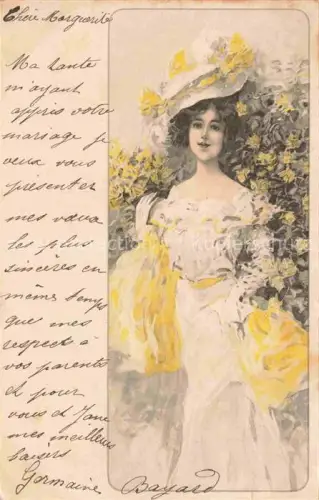 Chère Marguerite
Ma tante
m'ayant
appris votre
mariage je
veux vous
présenter
mes vœux
les plus
sincères en
même temps
que mes
respects à
vos parents
et pour
vous et Jane
mes meilleurs
baisers
Germaine Bayard